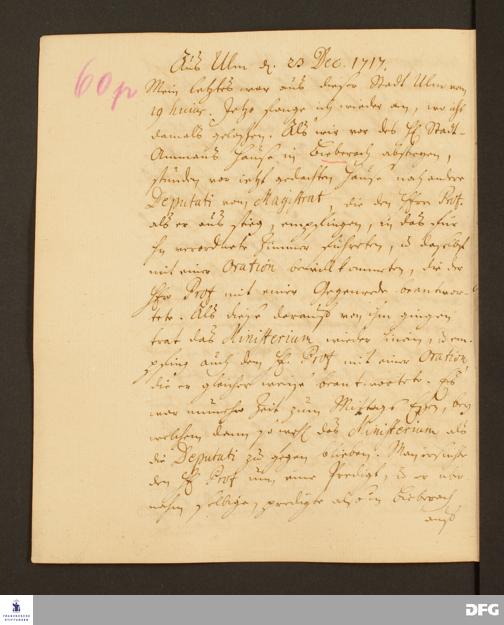 60 p
Aus Ulm d. 23 Dec. 1717.
Mein letztes war aus dieser Stadt Ulm vom
19 hujus. Jetzo fange ich wieder an, wo ichs
damals gelassen. Als wir vor des H. Stadt-
Ammans Hause in Bieberach abstiegen,
stunden vor jetzt gedachten Hause noch andre
Deputati vom Magistrat, die den Herrn Prof.
als er aus stieg, empfingen, in das für
ihn verordnete Zimmer führeten, u. daselbst
mit einer Oration bewillkommeten, die der
Herr Prof mit einer Gegenrede beantwor-
tete. Als diese darauf von ihm gingen
trat das Ministerium wieder hinein, u. em-
pfing auch den H. Prof mit einer Oration,
die er gleicher weise beantwortete. Es
war nunmehr Zeit zum Mittags Essen, bey
welchem dann so wohl das Ministerium als
die Deputati zu gegen blieben. Man ersuchte
den H. Prof um eine Predigt, u. er über
nahm selbige, predigte also in Bieberach
auch
FRANCKESCHE
STIFTUNGEN
DFG